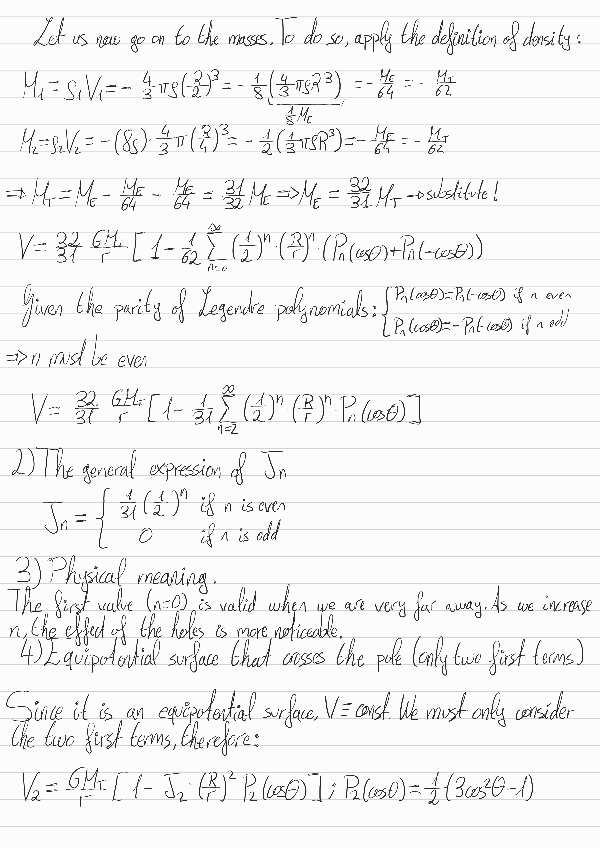 Let us now go on to the masses. To do so, apply the definition of density:
M₁ = ρ₁V₁ = - 4/3 πρ(R/2)³ = - 1/8 (4/3 πρR³) = - M_E/64 = - M_T/62
1/8 M_E
M₂ = ρ₂V₂ = -(8ρ)· 4/3 π (R/4)³ = - 1/2 (1/3 πρR³) = - M_E/64 = - M_T/62
⇒ M_T = M_E - M_E/64 - M_E/64 = 31/32 M_E ⇒ M_E = 32/31 M_T → substitute!
V = 32/31 GM_T/r [ 1 - 1/62 ∑_{n=0}^{∞} (1/2)ⁿ · (R/r)ⁿ · (Pₙ(cosθ) + Pₙ(-cosθ))
Given the parity of Legendre polynomials: { Pₙ(cosθ) = Pₙ(-cosθ) if n even
Pₙ(cosθ) = -Pₙ(-cosθ) if n odd
⇒ n must be even
V = 32/31 GM_T/r [ 1 - 1/31 ∑_{n=2}^{∞} (1/2)ⁿ (R/r)ⁿ · Pₙ(cosθ) ]
2) The general expression of Jₙ
Jₙ = { 1/31 (1/2)ⁿ if n is even
0 if n is odd
3) Physical meaning.
The first value (n=0) is valid when we are very far away. As we increase
n, the effect of the holes is more noticeable.
4) Equipotential surface that crosses the pole (only two first terms)
Since it is an equipotential surface, V = const. We must only consider
the two first terms, therefore:
V₂ = GM_T/r [ 1 - J₂ · (R/r)² P₂(cosθ) ] ; P₂(cosθ) = 1/2 (3cos²θ - 1)